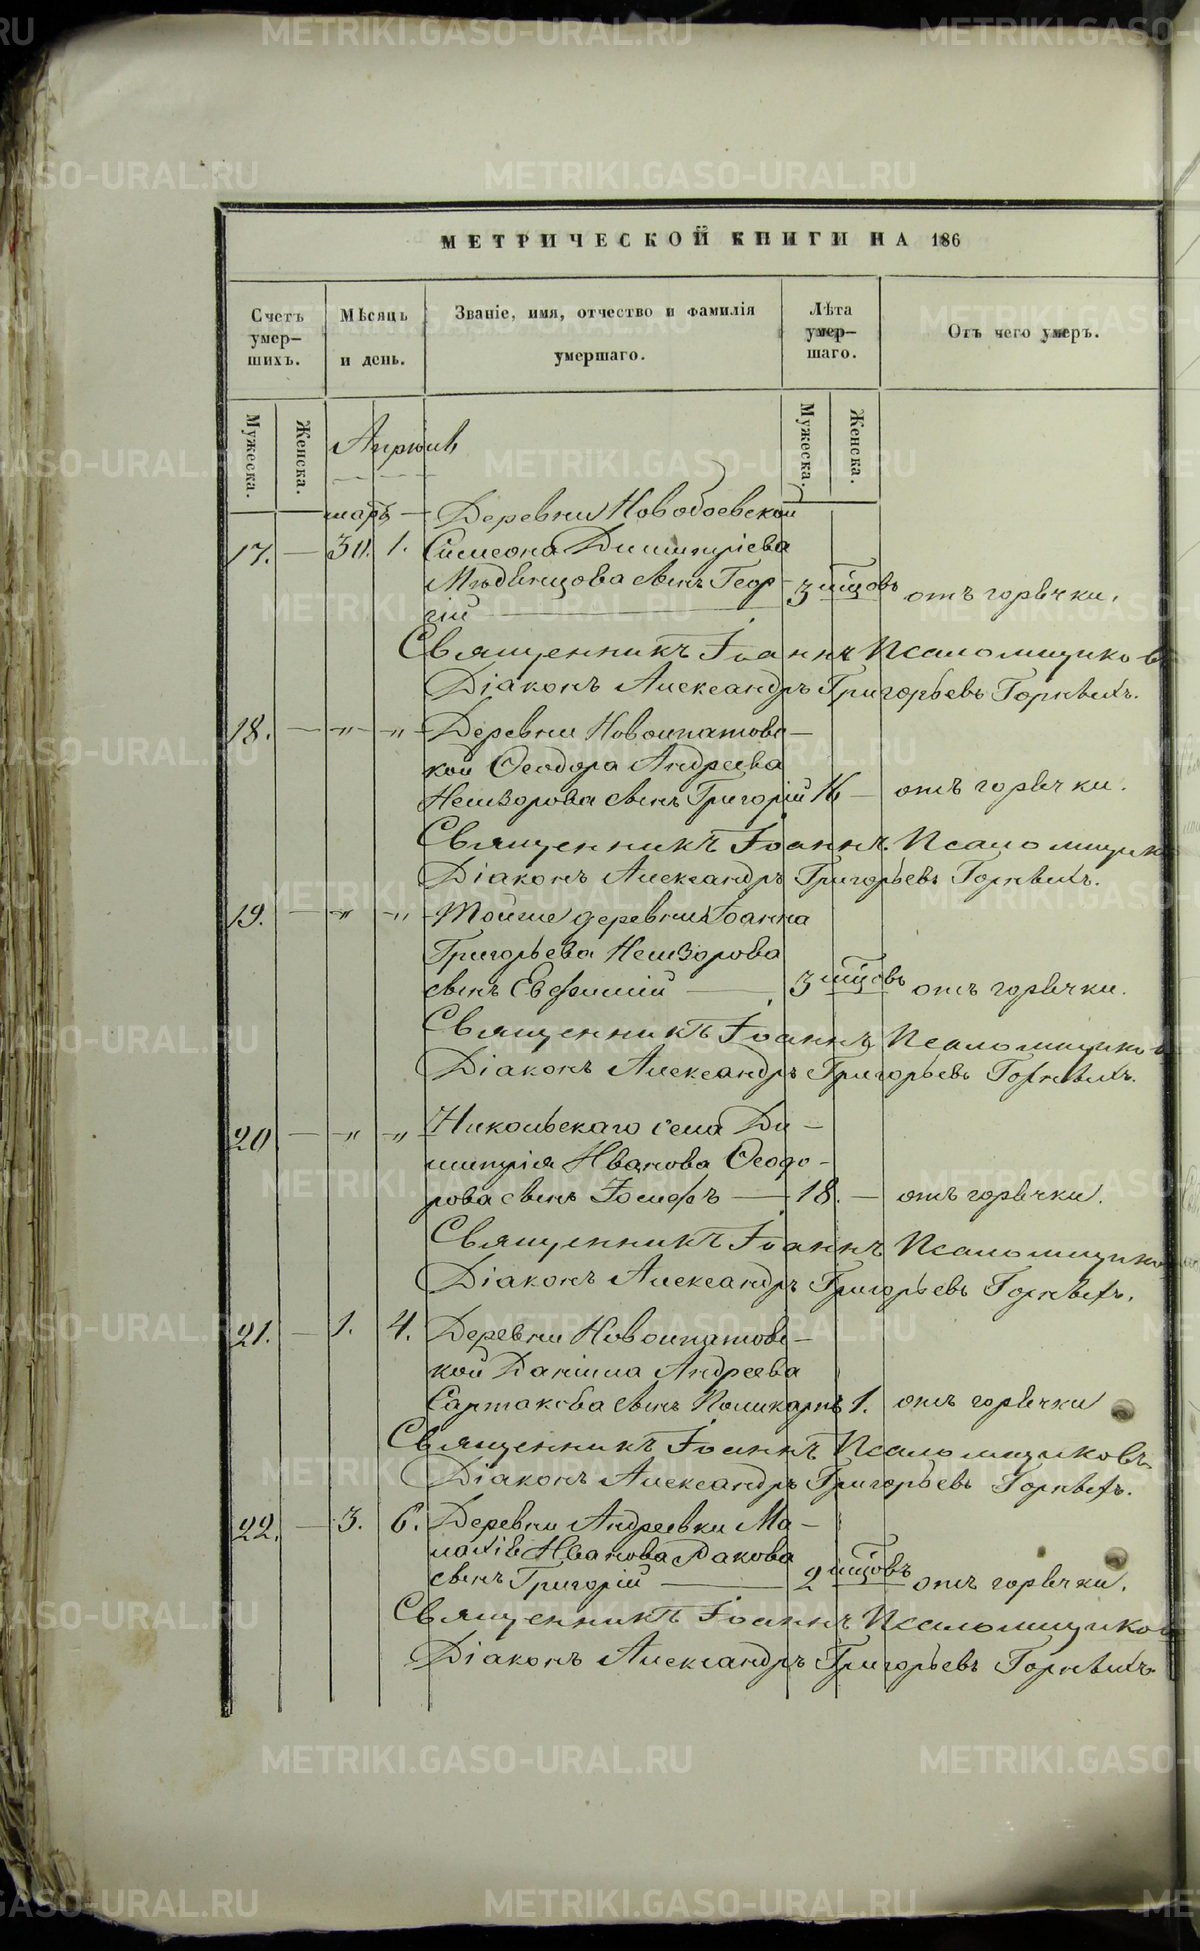 МЕТРИЧЕСКОЙ КНИГИ НА 186
Счетъ умер-шихъ.
Мѣсяцъ и день.
Званіе, имя, отчество и фамилія умершаго.
Лѣта умер-шаго.
Отъ чего умеръ.
Мужеска.
Женска.
Мужеска.
Женска.
Апрѣль
мартъ — Деревни Новобоевской
17. — 30. 1. Симеона Димитріева
Мѣденцова сынъ Геор-
гій — 3 мцовъ отъ горячки.
Священникъ Іоаннъ Псаломщиков
Діаконъ Александръ Григорьевъ Горныхъ.
18. — „ — „ — Деревни Новоипатовс-
кой Ѳеодора Андреева
Неизорова сынъ Григорій 16 — отъ горячки.
Священникъ Іоаннъ Псаломщико
Діаконъ Александръ Григорьевъ Горныхъ.
19. — „ — „ — Тойже деревни Іоанна
Григорьева Неизорова
сынъ Евфимій — 3 мцовъ отъ горячки.
Священникъ Іоаннъ Псаломщиков
Діаконъ Александръ Григорьевъ Горныхъ.
20 — „ — „ — Никольскаго села Ди-
митрія Иванова Ѳеодо-
рова сынъ Іосифъ — 18. — отъ горячки.
Священникъ Іоаннъ Псаломщико
Діаконъ Александръ Григорьевъ Горныхъ.
21. — 1. 4. Деревни Новоипатовс-
кой Даніила Андреева
Сартакова сынъ Поликарпъ 1. отъ горячки
Священникъ Іоаннъ Псаломщиковъ
Діаконъ Александръ Григорьевъ Горныхъ.
22. — 3. 6. Деревни Андреевки Ма-
лахіи Иванова Ракова
сынъ Григорій — 2 мцовъ отъ горячки.
Священникъ Іоаннъ Псаломщиков
Діаконъ Александръ Григорьевъ Горныхъ
METRIKI.GASO-URAL.RU